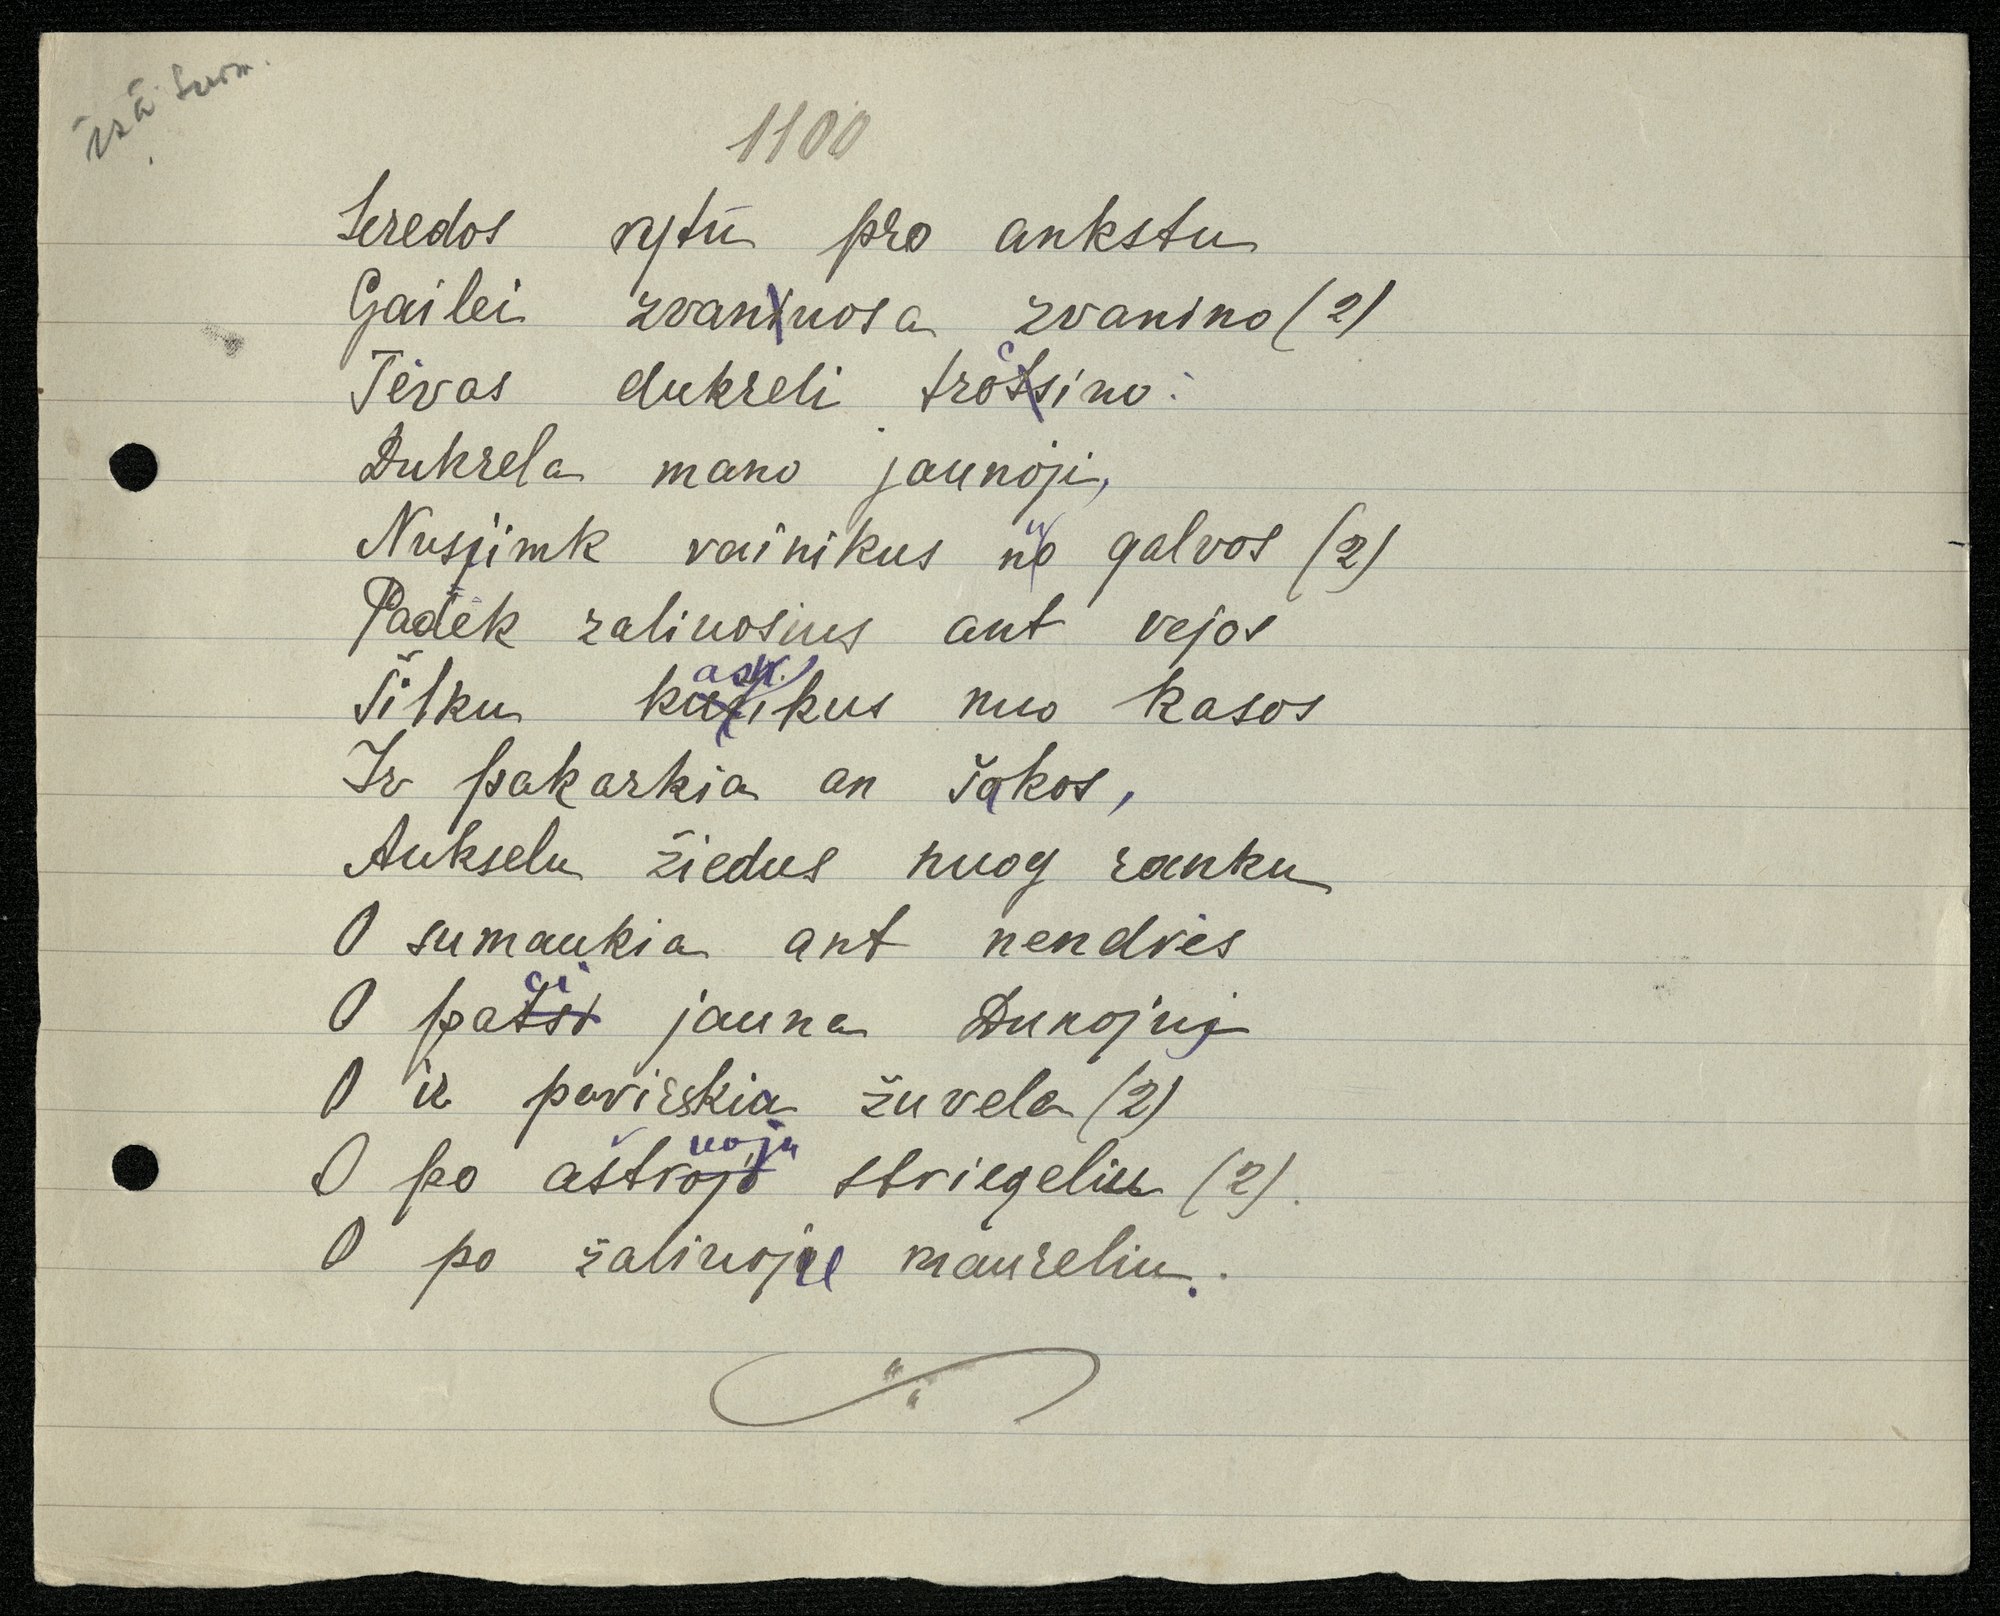 1100
Seredos rytū pro ankstu
Gailei zvanuosa zvanino (2)
Tėvas dukreli tročino:
Dukrela mano jaunoji,
Nusiimk vainikus nū galvos (2)
Padėk zaliuosius ant vejos
Šilku kaspikus nuo kasos
Ir pakarkia an šakos,
Aukselu žiedus nuog ranku
O sumaukia ant nendrės
O paci jauna Dunojuj
O ir pavirskia žuvela (2)
O po aštruoju striegeliu (2).
O po žaliuoju maureliu.